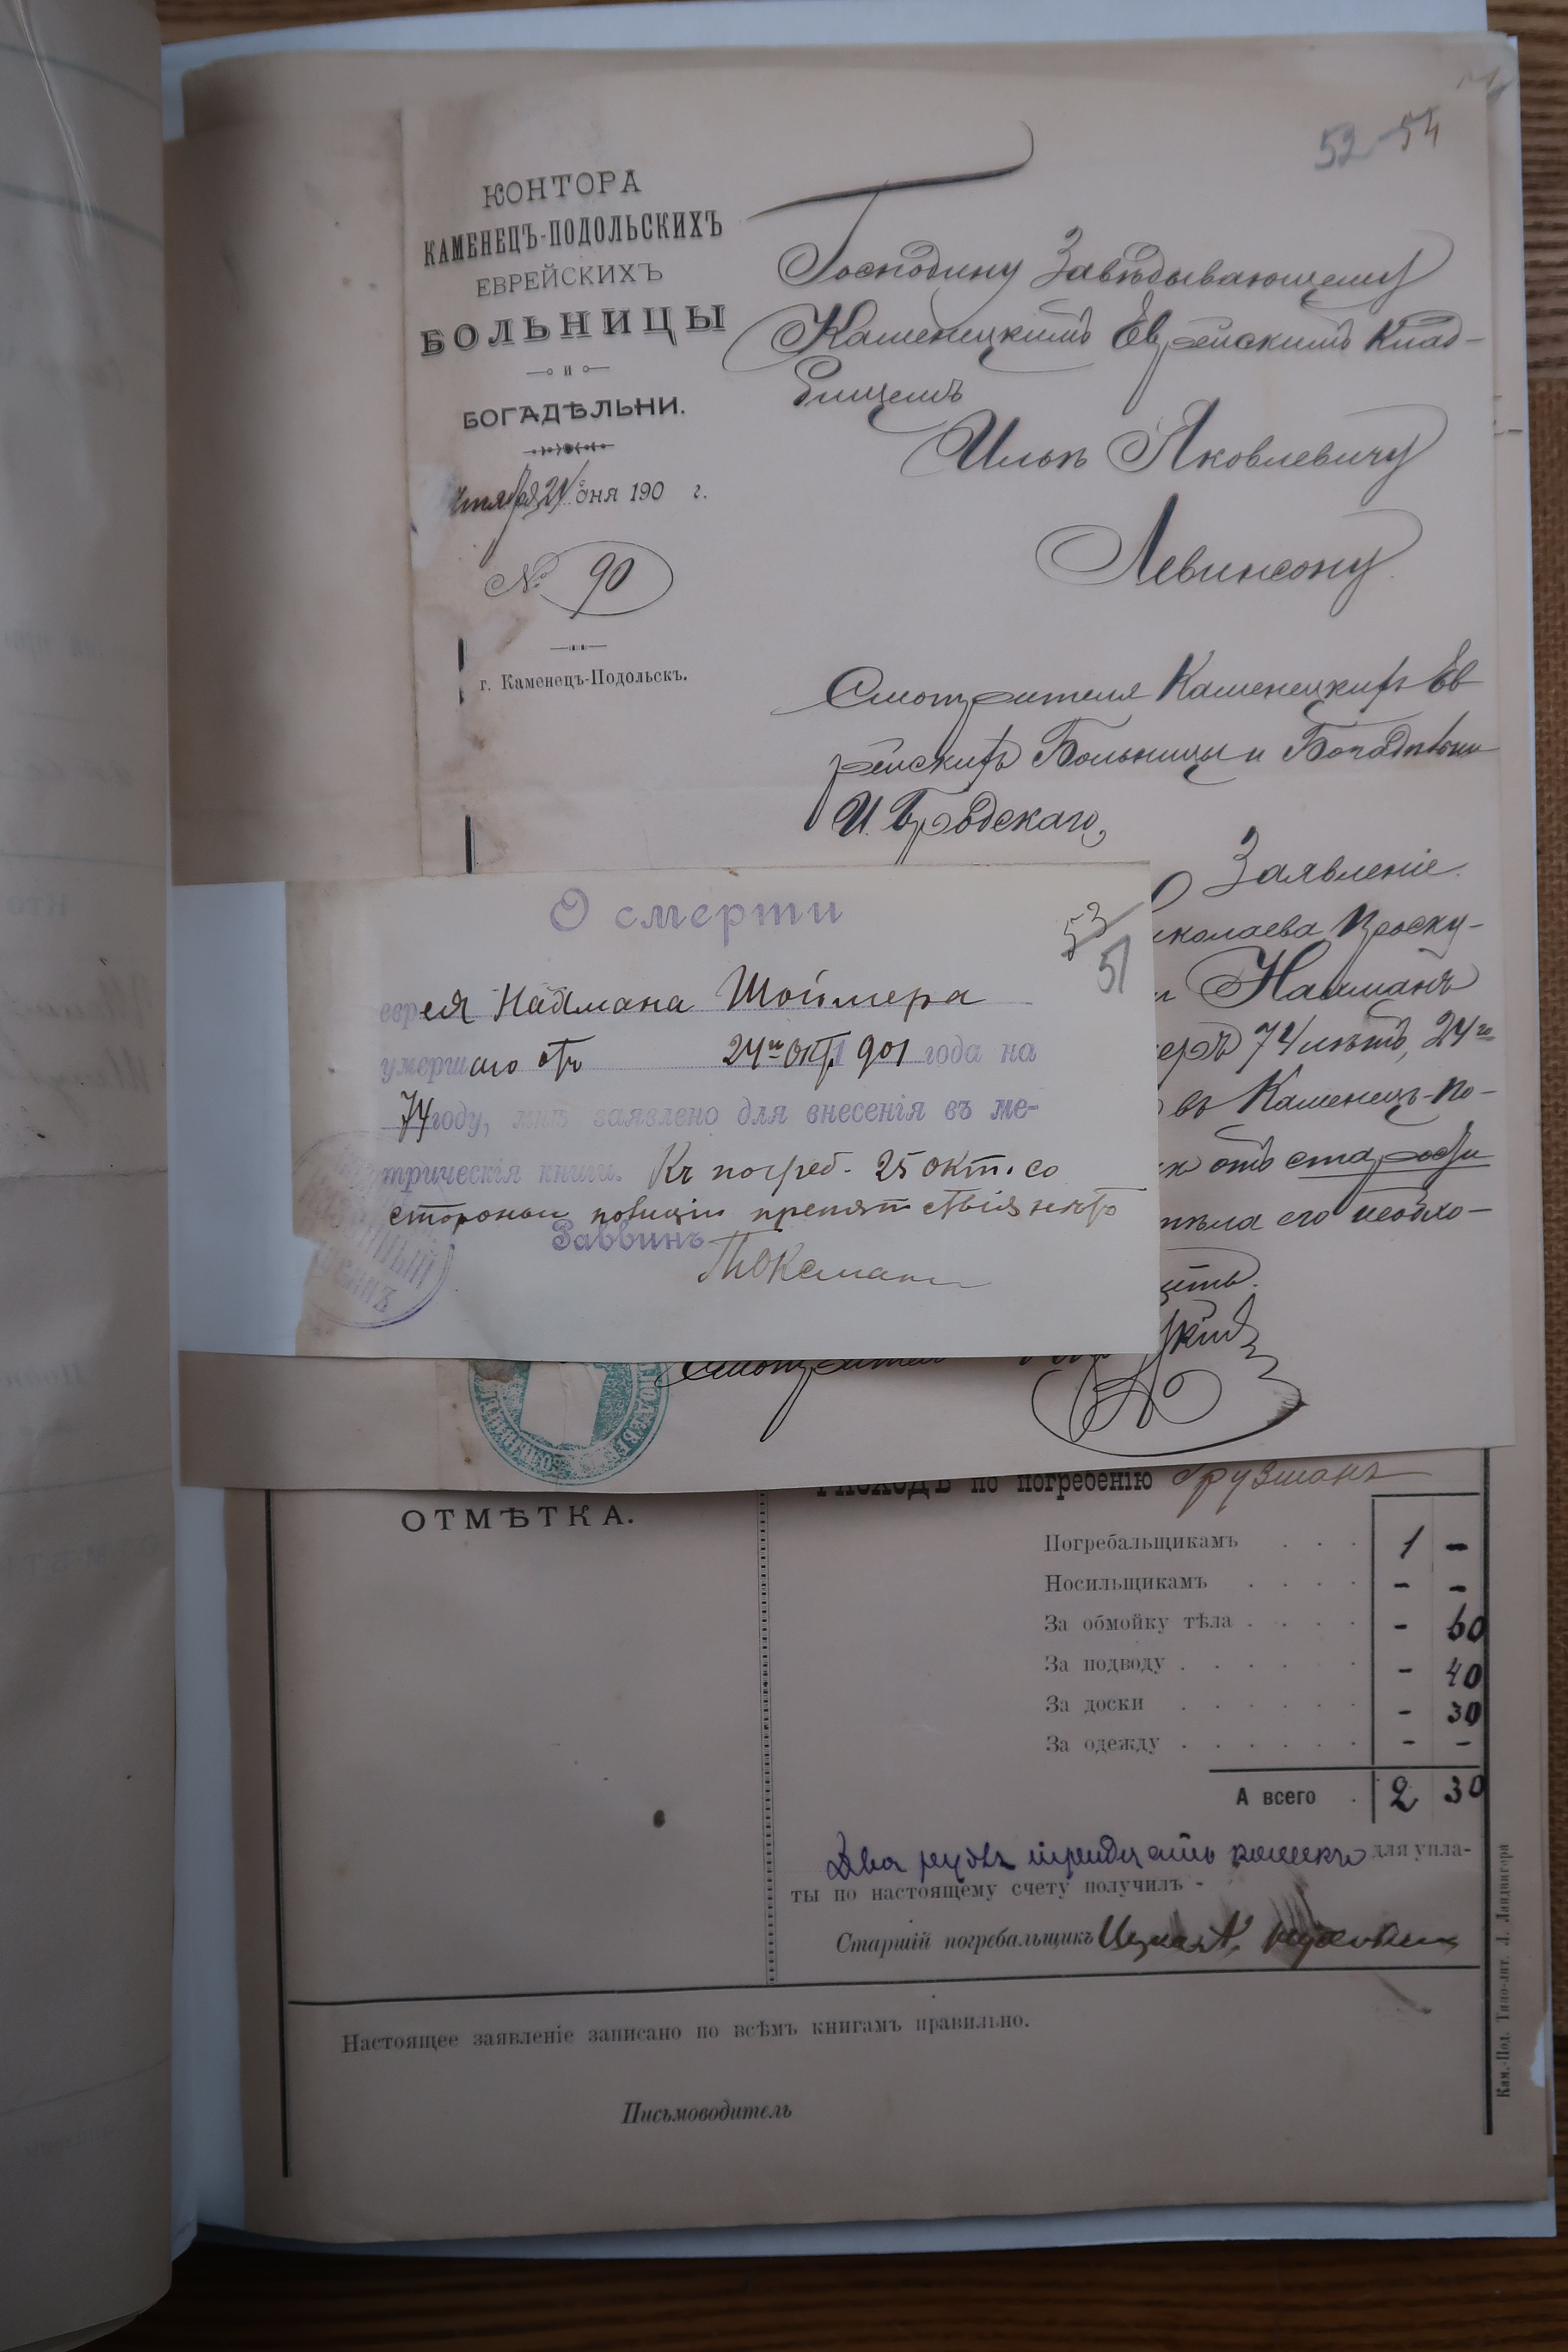 52-54
КОНТОРА
КАМЕНЕЦЪ-ПОДОЛЬСКИХЪ
ЕВРЕЙСКИХЪ
БОЛЬНИЦЫ
И
БОГАДѢЛЬНИ.
дня 190 г.
№ 90
г. Каменецъ-Подольскъ.
Господину Завѣдывающему
Каменецкимъ Еврейскимъ Клад-
бищемъ
Ильѣ Яковлевичу
Левинсону
Смотрителя Каменецкихъ Ев
рейскихъ Больницы и Богадѣльни
И. Бродскаго,
Заявленіе.
иколаева Проску-
Нахманъ
еръ 74 лѣтъ, 24го
въ Каменецъ-По-
отъ старости
тѣла его необхо-
ить.
53
51
О смерти
еврея Нахмана Шоймера
умершаго 24го Окт 1901 года на
74 году, мнѣ заявлено для внесенія въ ме-
трическія книги. Къ погреб. 25 окт. со
стороны полиціи препятствія нѣтъ
Раввинъ
Смотритель
ОТМѢТКА.
Расходъ по погребенію Грузманъ
Погребальщикамъ . . . 1 -
Носильщикамъ . . . . - -
За обмойку тѣла . . . . - 60
За подводу . . . . . - 40
За доски . . . . . - 30
За одежду . . . . . - -
А всего . 2 30
Два рубля тридцать копѣекъ для упла-
ты по настоящему счету получилъ -
Старшій погребальщикъ
Настоящее заявленіе записано по всѣмъ книгамъ правильно.
Письмоводитель
Кам.-Под. Типо-лит. Л. Ландвигера